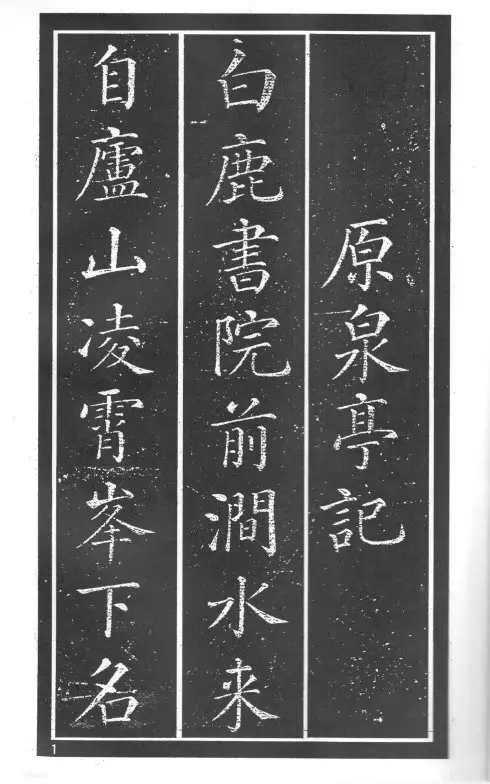 原泉亭記
白鹿書院前澗水来
自廬山凌霄峯下名
1